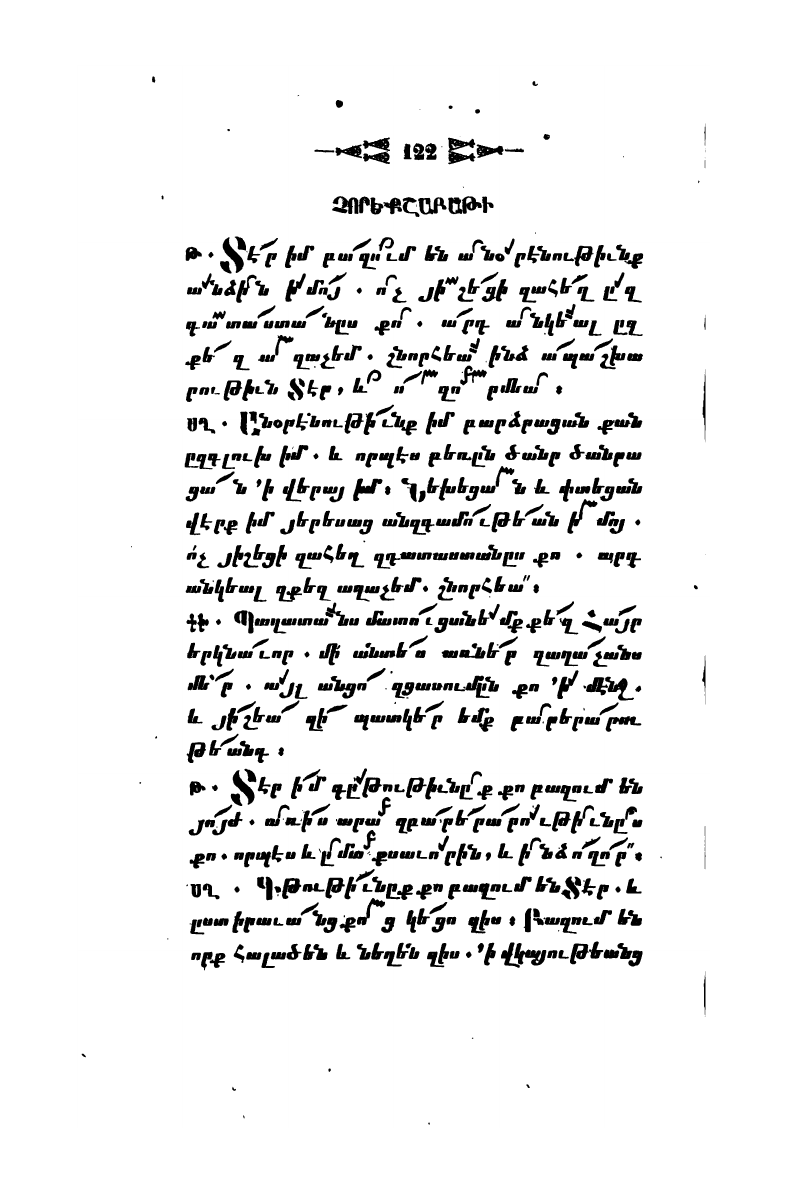 122
ՉՈՐԵՔՇԱԲԱԹԻ
թ. Տէր իմ բազում են անօրէնութիւնք
անձին իմոյ. ոչ յիշեցի զահեղ ըզ
գատաստանըս քո. արդ անկեալ ըզ
քեզ աղաչեմ. շնորհեա ինձ ապաշխա
րութիւն Տէր, և ողորմեա։
սղ. Անօրէնութիւնք իմ բարձրացան քան
ըզգլուխ իմ. և որպէս բեռըն ծանր ծանրա
ցան ՚ի վերայ իմ։ Նեխեցան և փտեցան
վէրք իմ յերեսաց անզգամութեան իմոյ.
ոչ յիշեցի զահեղ զգատաստանըս քո. արդ
անկեալ զքեզ աղաչեմ. շնորհեա։
Պաղատանս մատուցանեմք քեզ Հայր
երկնաւոր. մի անտես առներ զաղաչանս
մեր. այլ անցո զցասումըն քո ՚ի մէնջ.
և յիշեա զի պատկեր եմք բարերարու
թեանդ։
թ. Տէր իմ գըթութիւնըք քո բազում են
յոյժ. առիս արա զբարերարութիւնըս
քո. որպէս և ըմտքսաւորին, և ինձ ողոր։
սղ. Գթութիւնըք քո բազում են Տէր. և
ըստ իրաւանց քոց կեցո զիս։ Բազում են
որք հալածեն և նեղեն զիս. ՚ի վկայութեանց